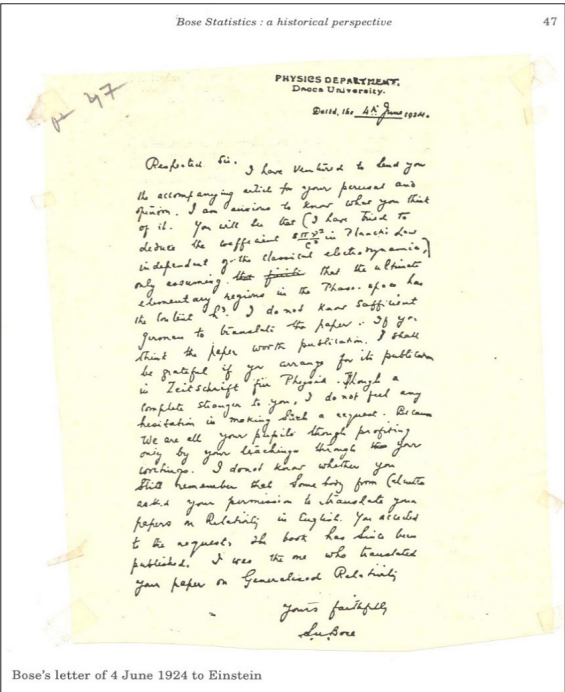 Bose Statistics : a historical perspective 47
PHYSICS DEPARTMENT,
Dacca University.
Dated, the 4th June 1924.
Respected Sir, I have ventured to send you
the accompanying article for your perusal and
opinion. I am anxious to know what you think
of it. You will see that (I have tried to
deduce the coefficient 8πν²/c³ in Planck's Law
independent of the classical electrodynamics)
only assuming that the ultimate
elementary regions in the Phase-space has
the content h³. I do not know sufficient
German to translate the paper. If you
think the paper worth publication, I shall
be grateful if you arrange for its publication
in Zeitschrift für Physik. Though a
complete stranger to you, I do not feel any
hesitation in making such a request. Because
we are all your pupils though profiting
only by your teachings through your
writings. I donot know whether you
still remember that somebody from Calcutta
asked your permission to translate your
papers on Relativity in English. You acceded
to the request. The book has since been
published. I was the one who translated
your paper on Generalised Relativity
Yours faithfully
S.N. Bose
Bose's letter of 4 June 1924 to Einstein